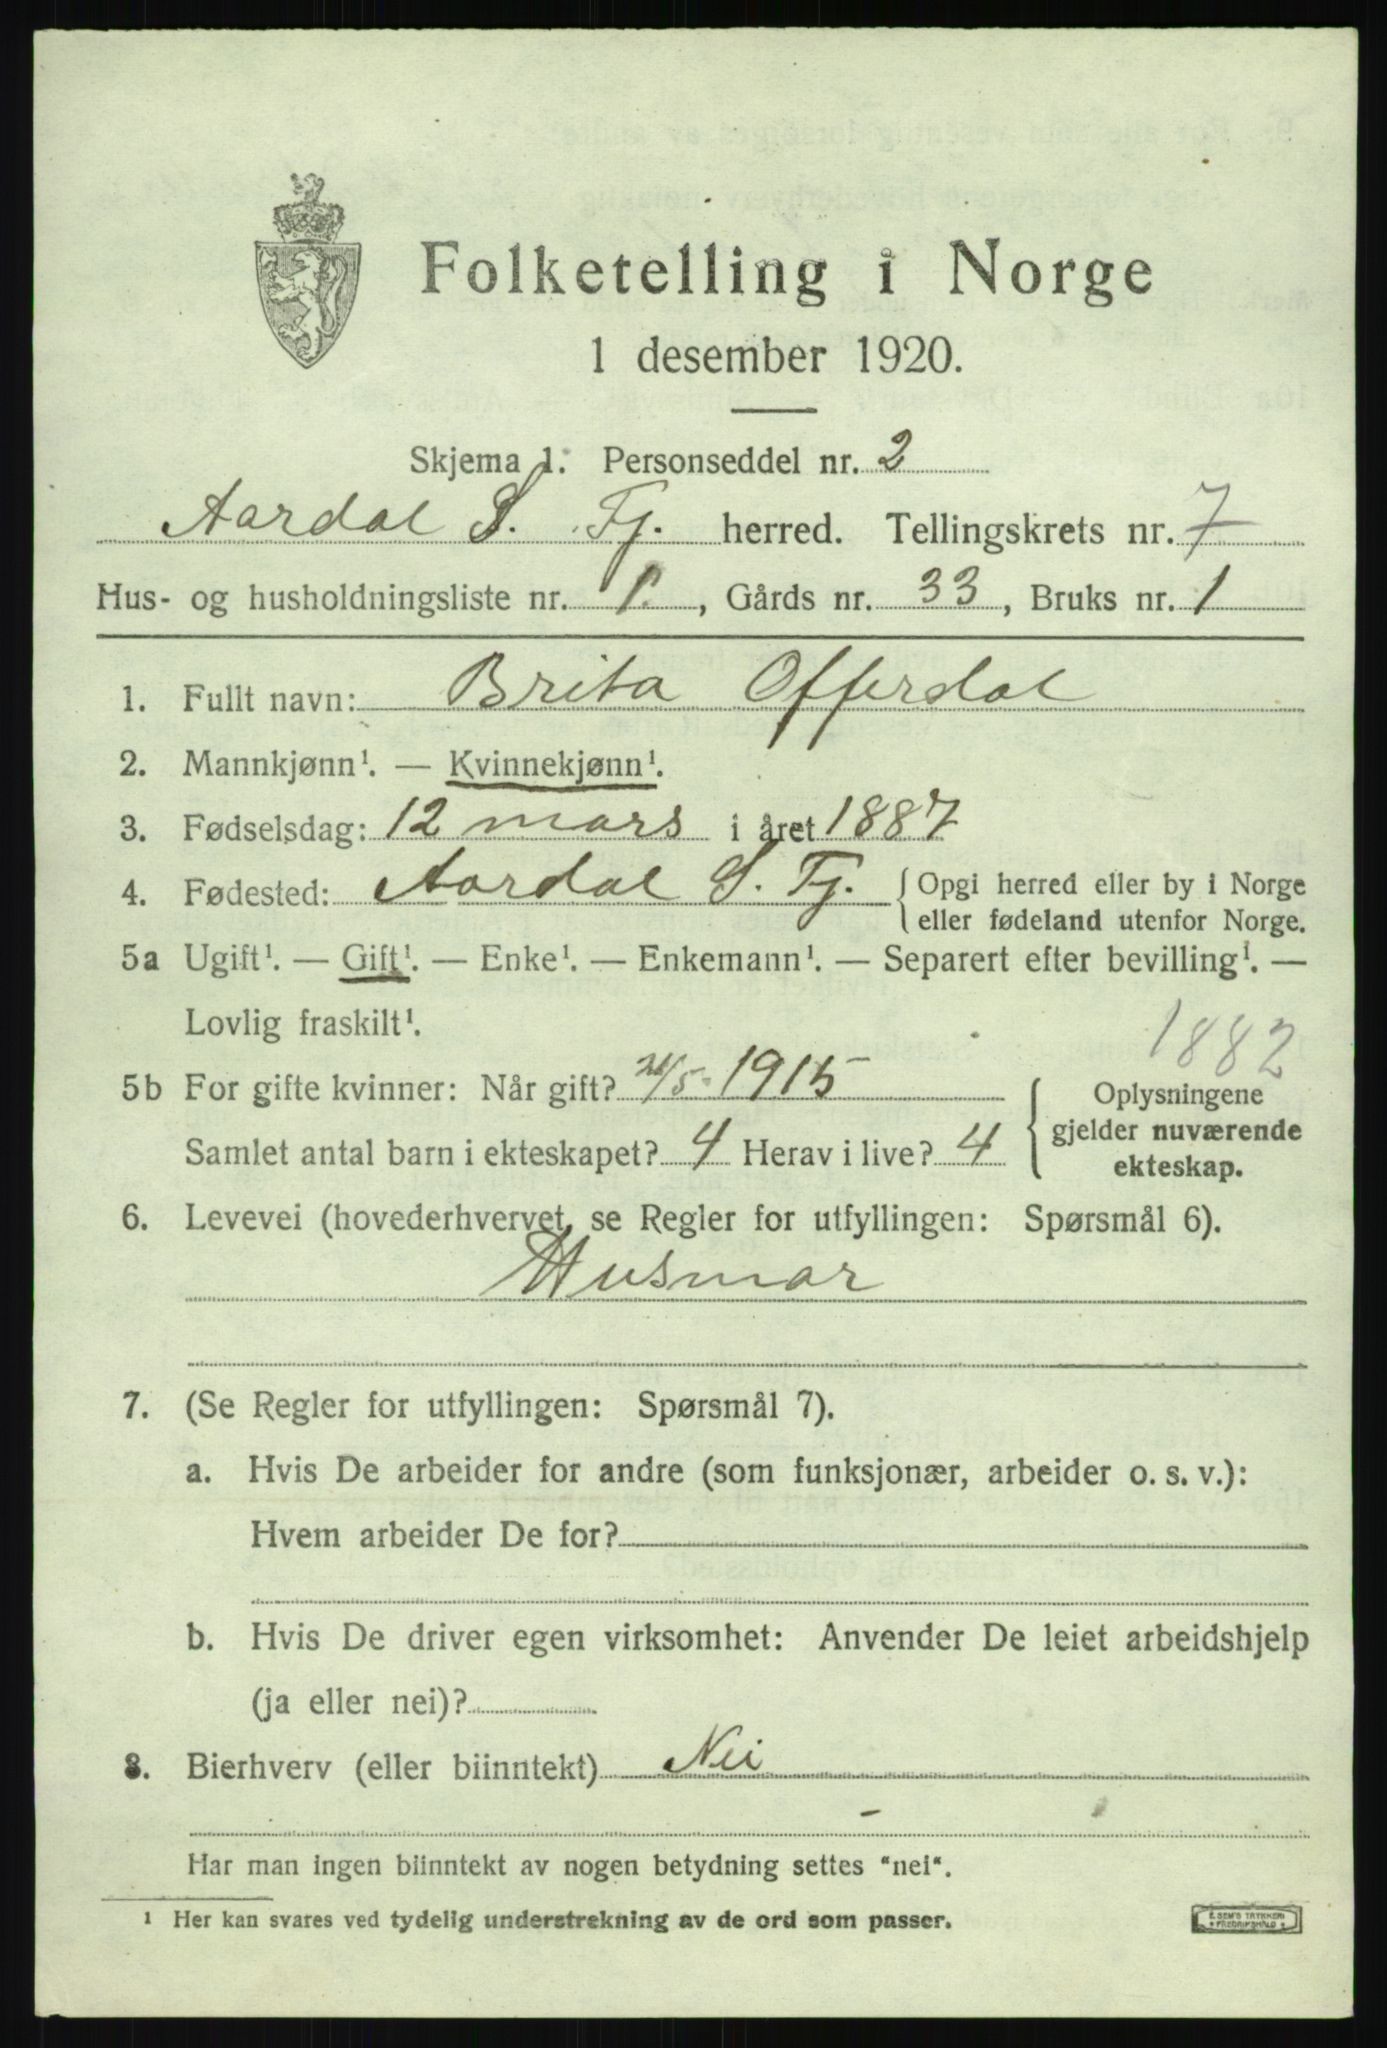 Folketelling i Norge
1 desember 1920.
Skjema 1. Personseddel nr. 2
Aardal S. Fj. herred. Tellingskrets nr. 7
Hus- og husholdningsliste nr. 1., Gårds nr. 33, Bruks nr. 1
1. Fullt navn: Brita Offerdal
2. Mannkjønn¹. — Kvinnekjønn¹.
3. Fødselsdag: 12 mars i året 1887
4. Fødested: Aardal S. Fj. { Opgi herred eller by i Norge
eller fødeland utenfor Norge.
5a Ugift¹. — Gift¹. — Enke¹. — Enkemann¹. — Separert efter bevilling¹. —
Lovlig fraskilt¹.
1882
5b For gifte kvinner: Når gift? /5 1915
Samlet antal barn i ekteskapet? 4 Herav i live? 4
{ Oplysningene
gjelder nuværende
ekteskap.
6. Levevei (hovederhvervet, se Regler for utfyllingen: Spørsmål 6).
Husmor
7. (Se Regler for utfyllingen: Spørsmål 7).
a. Hvis De arbeider for andre (som funksjonær, arbeider o. s. v.):
Hvem arbeider De for?
b. Hvis De driver egen virksomhet: Anvender De leiet arbeidshjelp
(ja eller nei)?
8. Bierhverv (eller biinntekt) Nei
Har man ingen biinntekt av nogen betydning settes "nei".
¹ Her kan svares ved tydelig understrekning av de ord som passer.
E. SEM'S TRYKKERI
FREDRIKSHALD